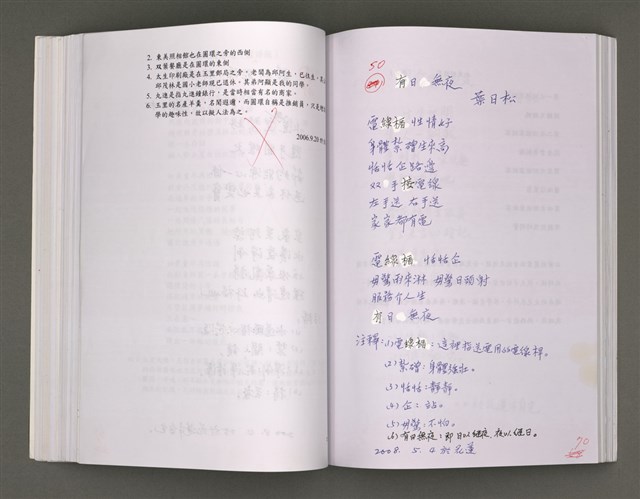 2. 東美照相館也在圓環之旁的西側
3. 双葉餐廳是在圓環的東側
4. 太生印刷廠是在玉里郵局之旁，老闆為邱阿生，已往生，其
邱茂林是國小老師現已退休，其弟阿顯是我的同學。
5. 丸進是指丸進鐘錶行，是當時相當有名的商家。
6. 玉里的名產羊羹，名聞遐邇，而圓環自稱是推銷員，只是增
學的趣味性，故以擬人法為之。
2006.9.20
50
有日 無夜
葉日松
電線楯 性情好
身體紮磳生來高
恬恬企路邊
双 手按電線
左手送 右手送
家家都有電
電線楯 恬恬企
毋驚雨來淋 毋驚日頭射
服務介人生
有日 無夜
注釋：(1)電線楯：這裡指送電用的電線桿。
(2)紮磳：身體強壯。
(3)恬恬：靜靜。
(4)企：站。
(5)毋驚：不怕。
(6)有日無夜：即日以繼夜，夜以繼日。
2008. 5. 4 於花蓮
70